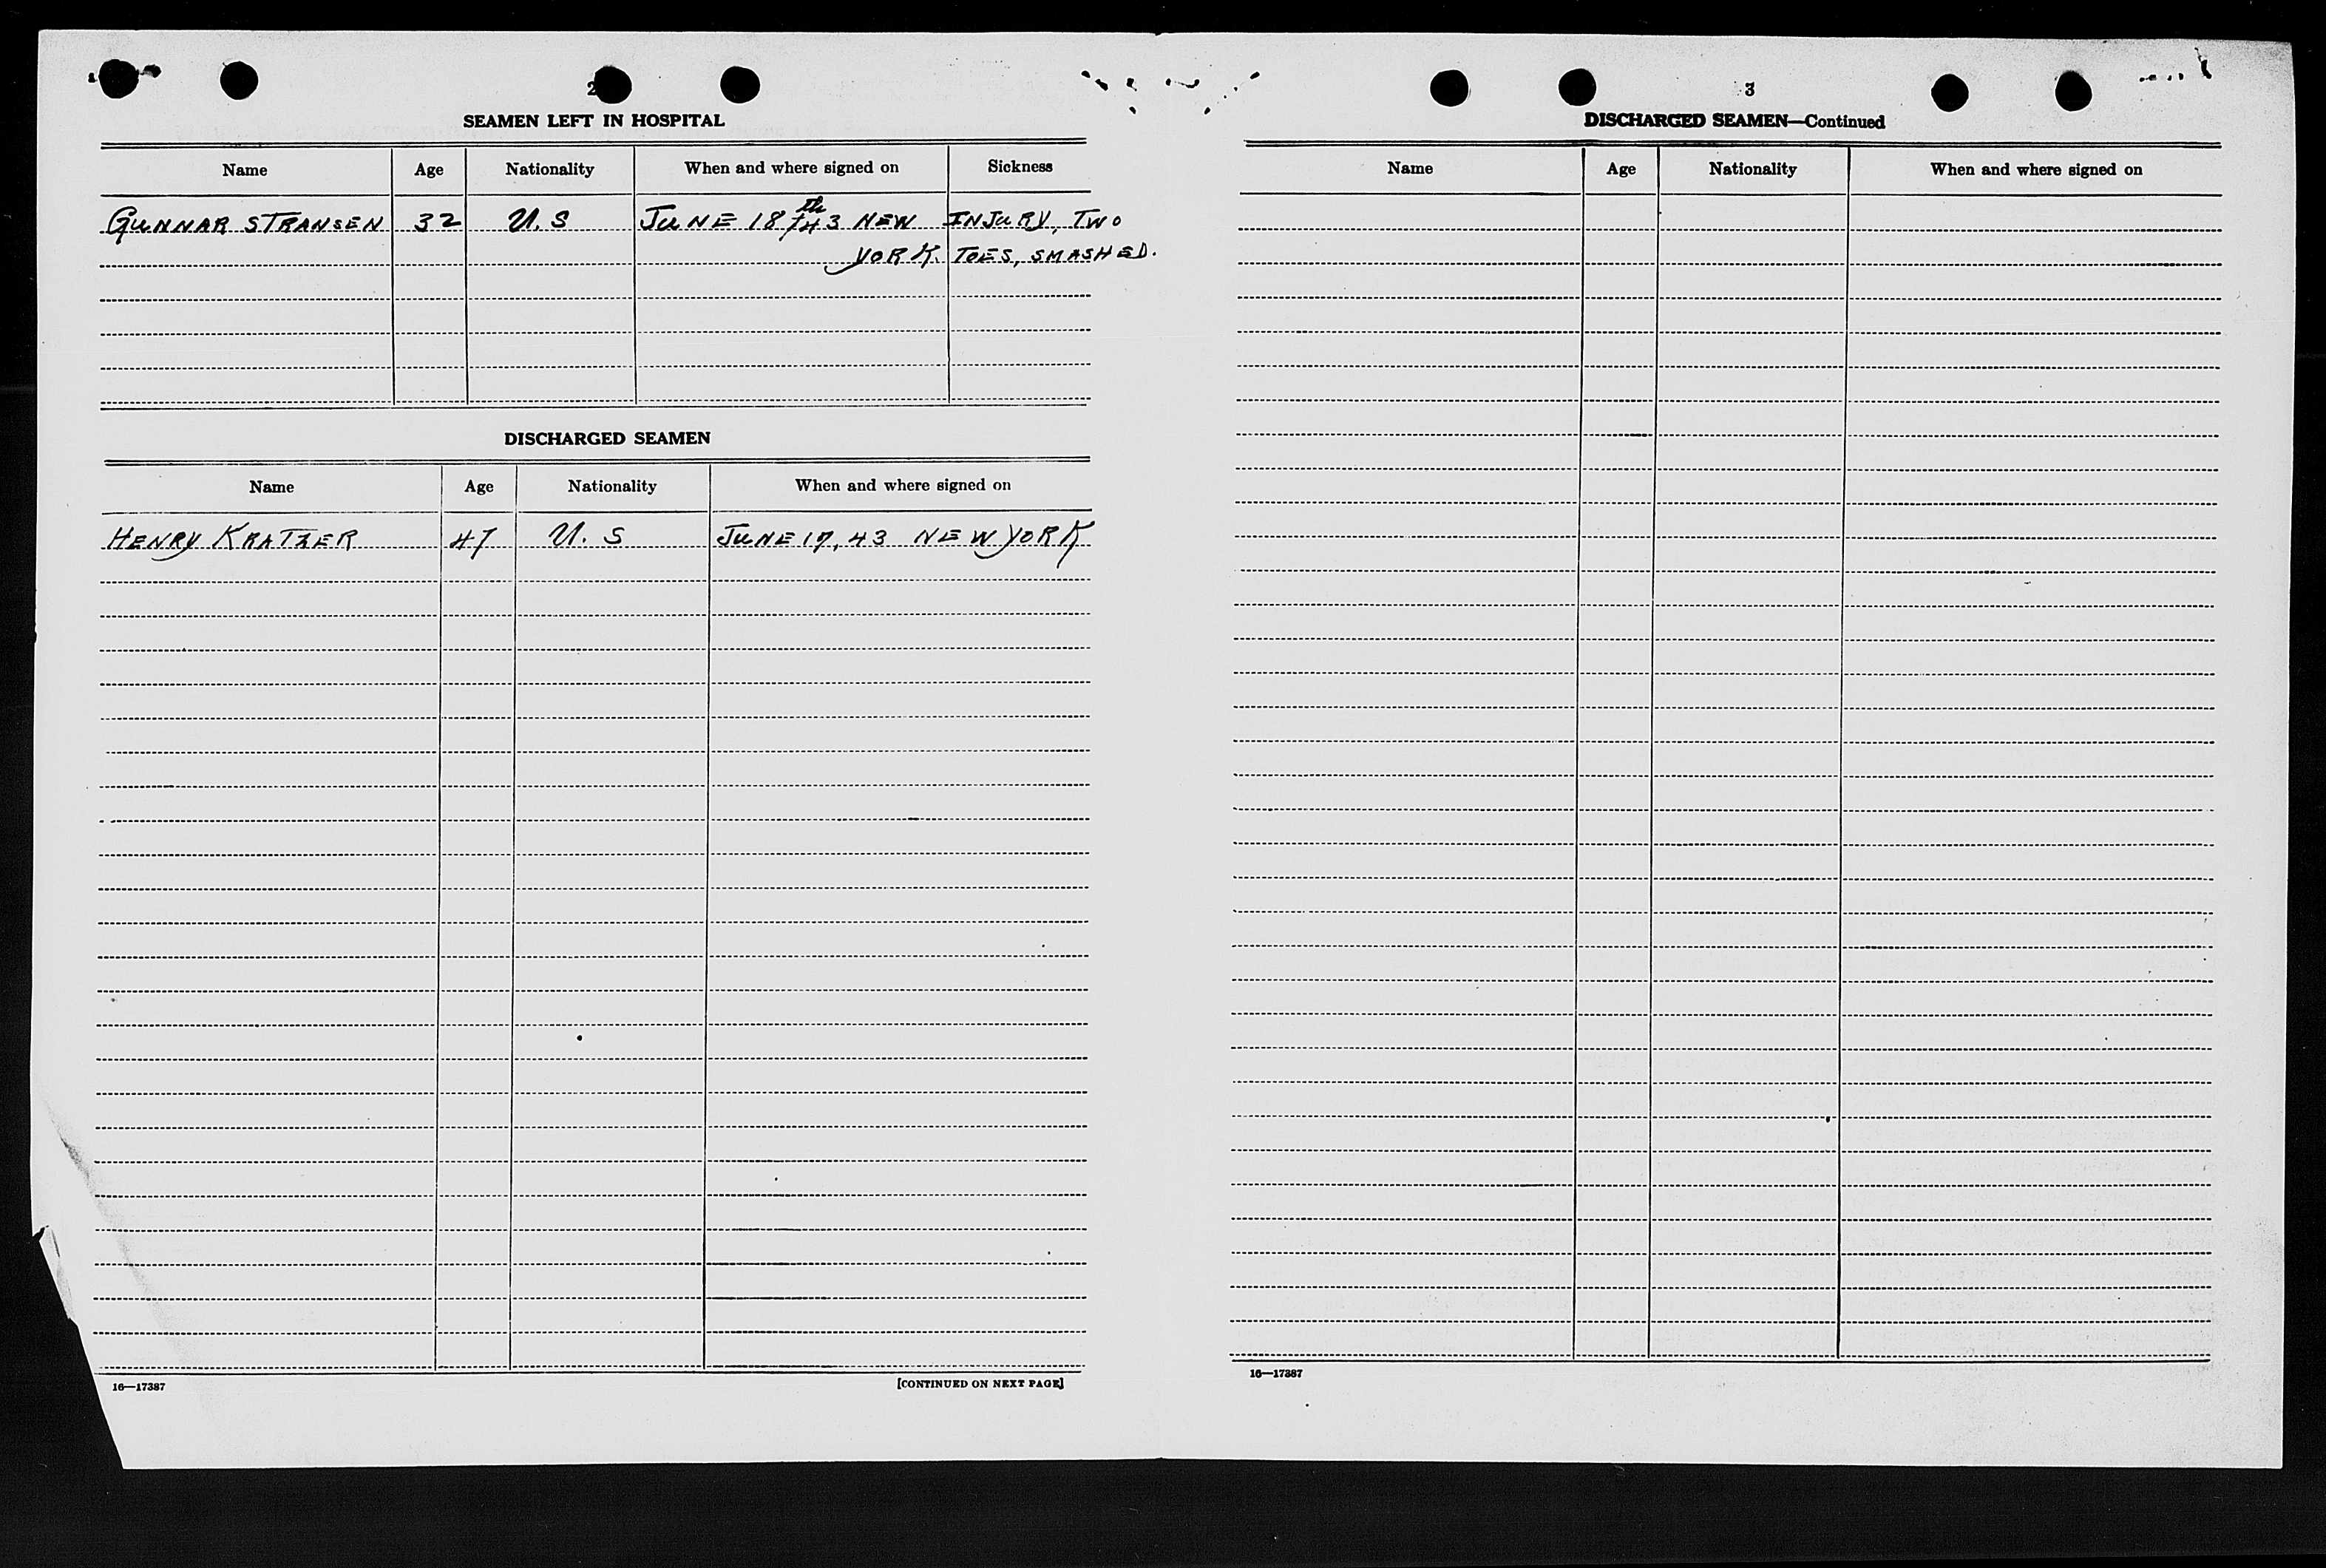 2
SEAMEN LEFT IN HOSPITAL
Name Age Nationality When and where signed on Sickness
GUNNAR STRANSEN 32 U.S JUNE 18th/43 NEW INJURY, TWO
YORK. TOES, SMASHED.
DISCHARGED SEAMEN
Name Age Nationality When and where signed on
HENRY KRATZER 47 U.S JUNE 17, 43 NEW YORK
16—17387 [CONTINUED ON NEXT PAGE]
3
DISCHARGED SEAMEN—Continued
Name Age Nationality When and where signed on
16—17387